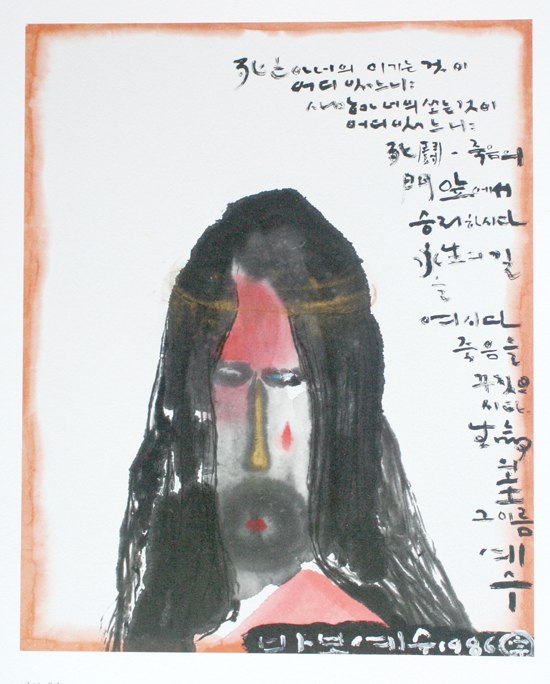 死는아 너의 이기는 것이
어디 있느냐:
사망아 너의 쏘는 것이
어디 있느냐:
死 - 죽음의
앞에서
승리하시다
의 길
을
여시다
죽음을
꾸짖으
시다
의 主
그 이름
예수
바보 예수 1986